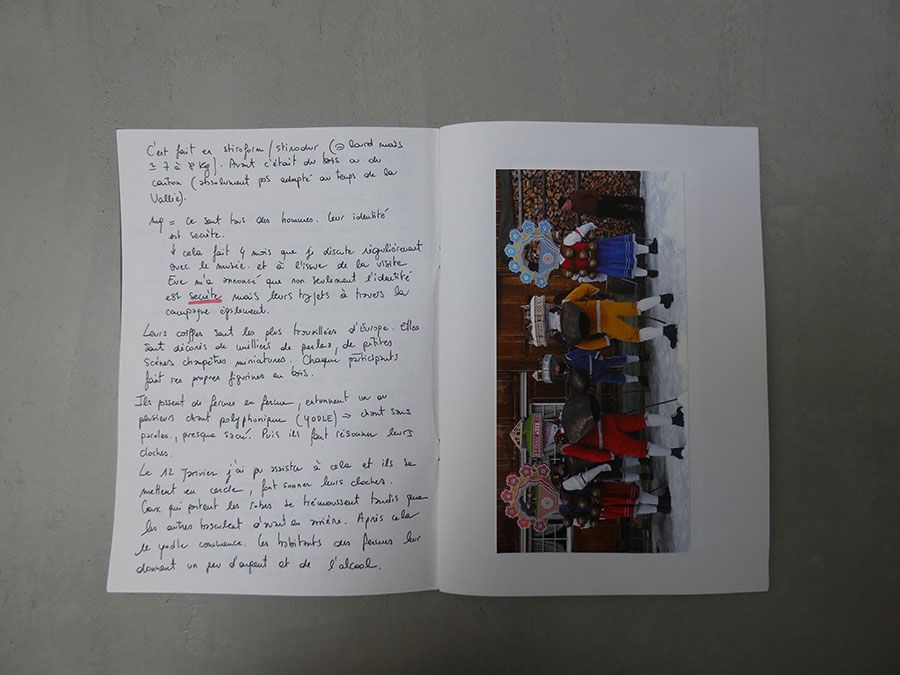 C'est fait en stiroform/stirodur (⊖ lourd mais
≃ 7 à 8 kg). Avant c'était du bois ou du
carton (absolument pas adapté au temps de la
Vallée).
= Ce sont tous des hommes. Leur identité
est secrète.
↓ cela fait 4 mois que je discute régulièrement
avec le musée. et à l'issue de la visite
Eve m'a annoncé que non seulement l'identité
est secrète mais leurs trajets à travers la
campagne également.
Leurs coiffes sont les plus travaillées d'Europe. Elles
sont décorés de milliers de perles, de petites
scènes champêtres miniatures. Chaque participants
fait ses propres figurines en bois.
Ils passent de fermes en ferme, entonnent un ou
plusieurs chant polyphonique (YODLE) → chant sans
paroles, presque sacré. Puis ils font résonner leurs
cloches.
Le 12 Janvier j'ai pu assister à cela et ils se
mettent en cercle, font sonner leurs cloches.
Ceux qui portent les robes se trémoussent tandis que
les autres basculent d'avant en arrière. Après cela
le yodle commence. Les habitants des fermes leur
donnent un peu d'argent et de l'alcool.